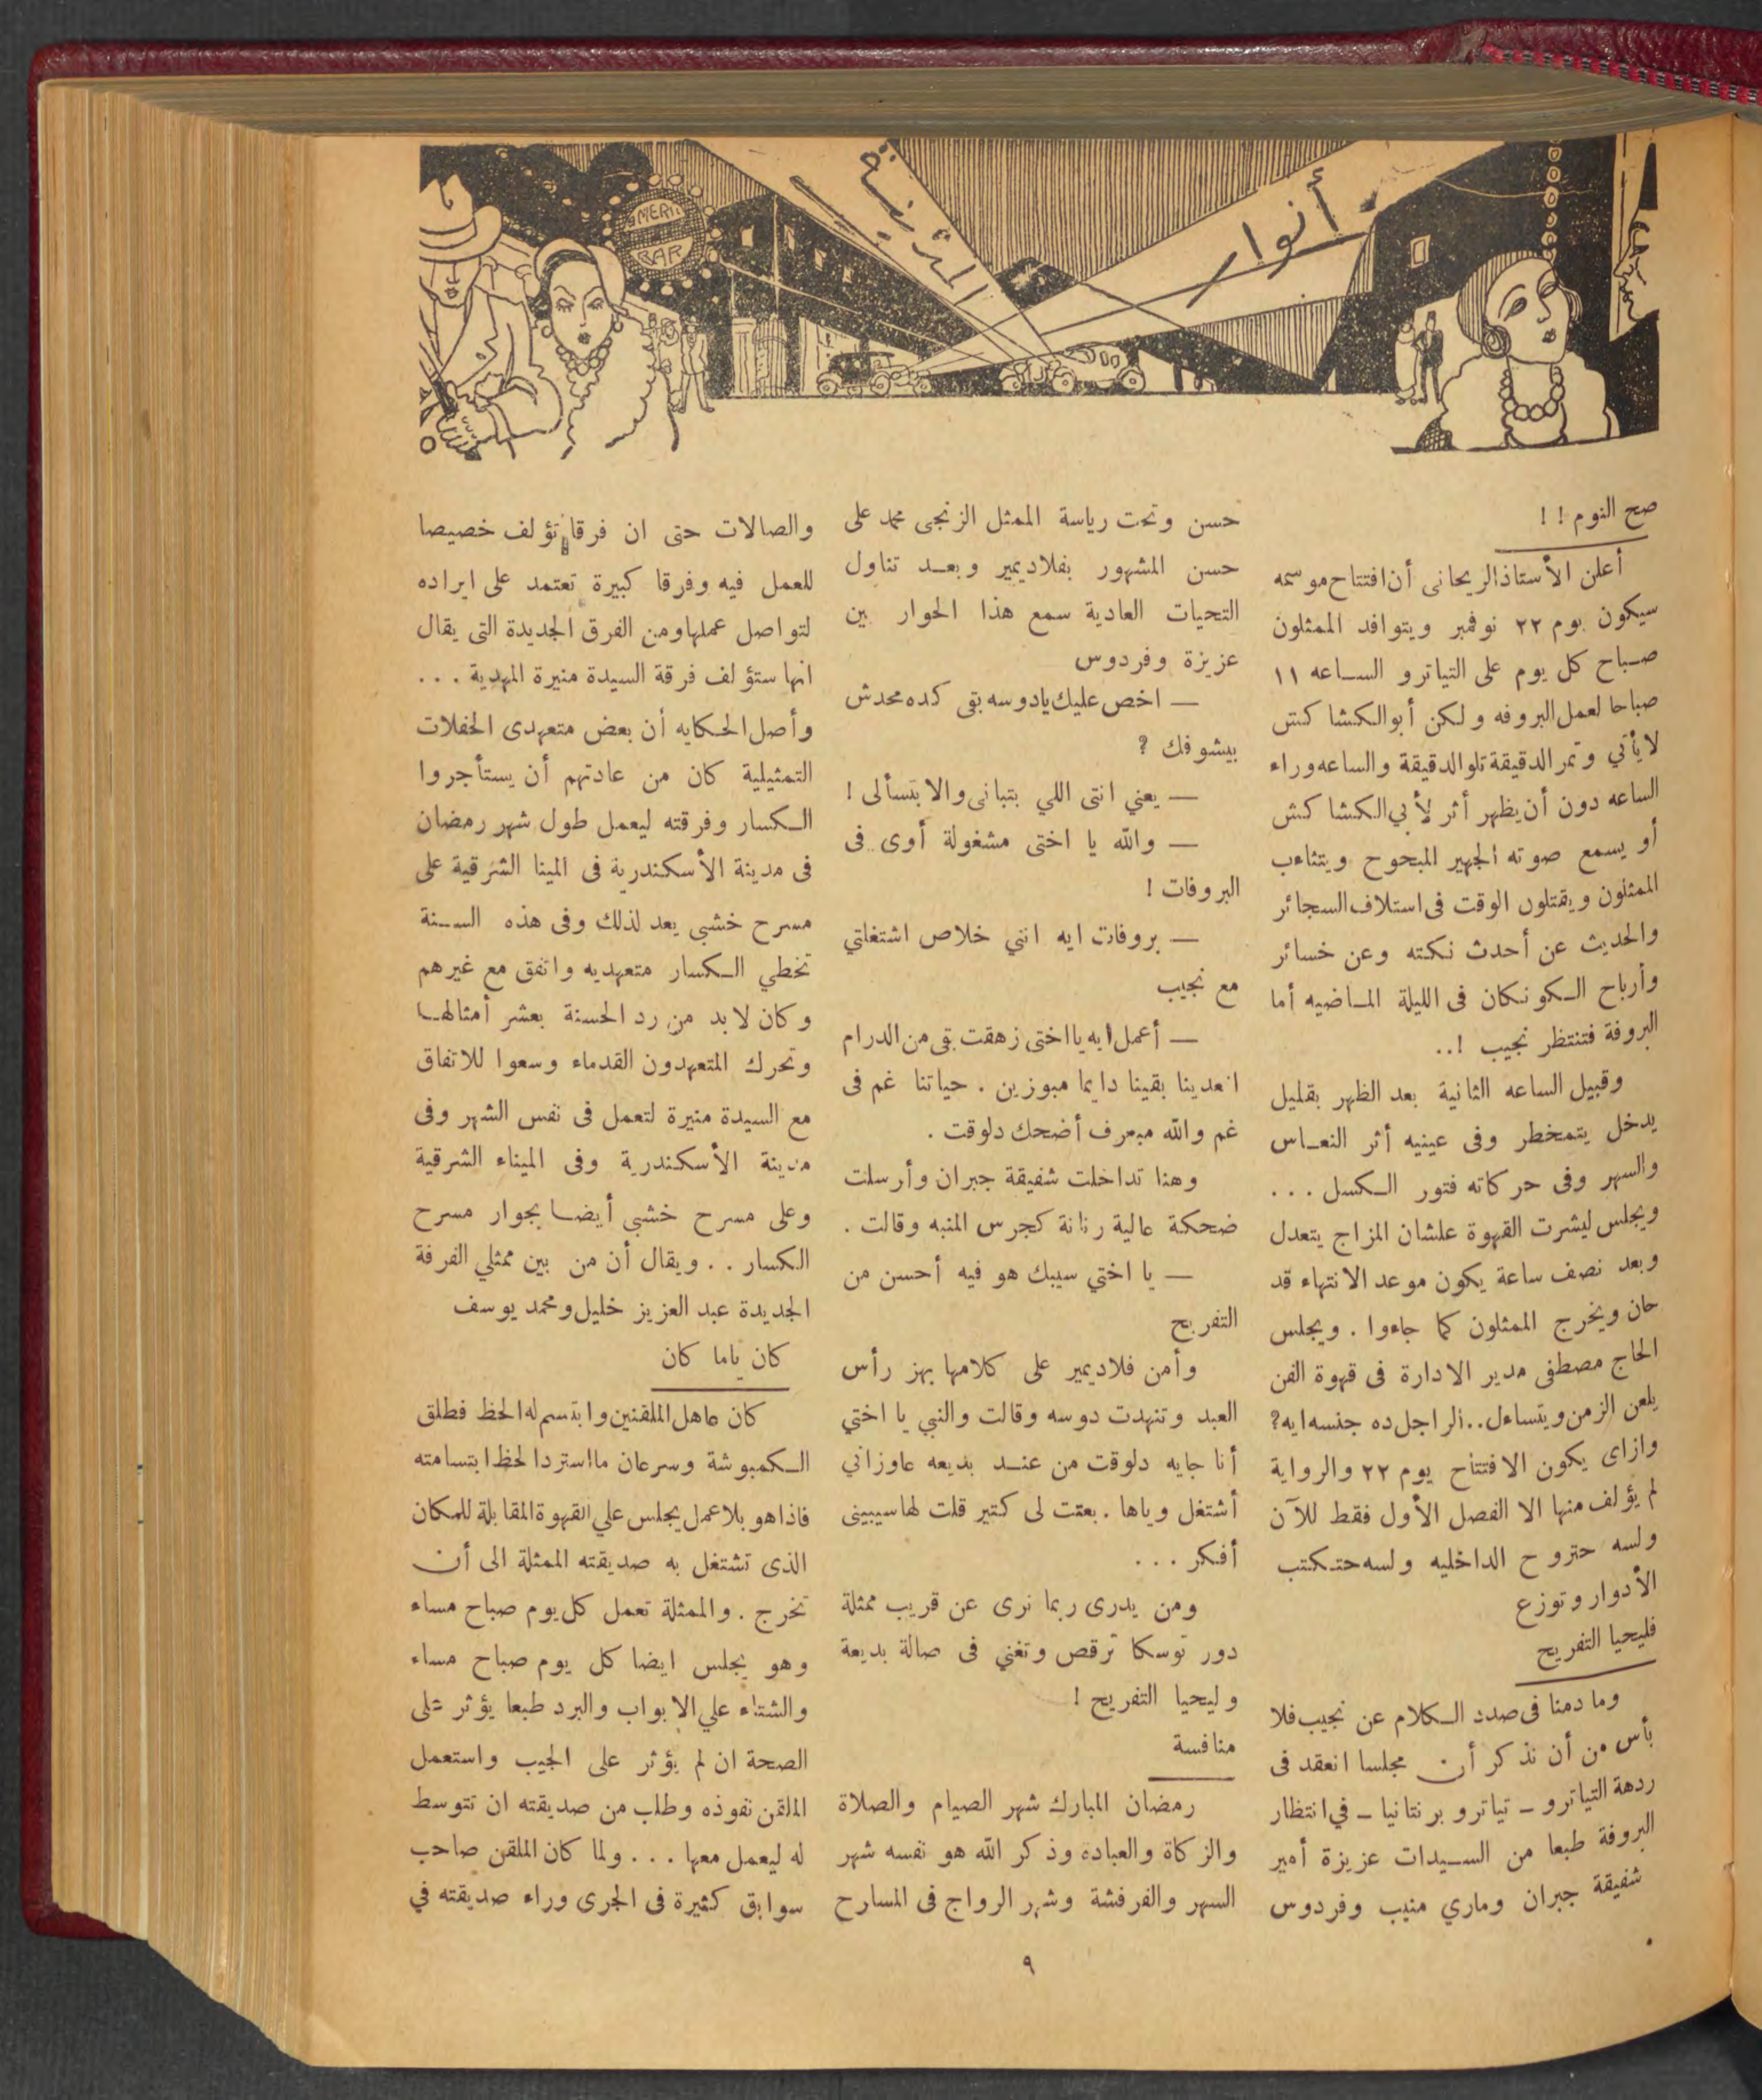 أنوار
المدينة
AMERI
BAR
صح النوم ! !
أعلن الأستاذ الريحانى أن افتتاح موسمه
سيكون يوم ٢٢ نوفمبر ويتوافد الممثلون
صباح كل يوم على التياترو الساعه ١١
صباحا لعمل البروفه ولكن أبو الكشا كش
لا يأتي وتمر الدقيقة تلو الدقيقة والساعه وراء
الساعه دون أن يظهر أثر لأبي الكشا كش
أو يسمع صوته الجهير المبحوح ويتثاءب
الممثلون ويقتلون الوقت فى استلاف السجائر
والحديث عن أحدث نكته وعن خسائر
وأرباح الكونكان فى الليلة الماضيه أما
البروفة فتنتظر نجيب !..
وقبيل الساعه الثانية بعد الظهر بقليل
يدخل يتمخطر وفى عينيه أثر النعاس
والسهر وفى حركاته فتور الكسل . . .
ويجلس ليشرب القهوة علشان المزاج يتعدل
وبعد نصف ساعة يكون موعد الانتهاء قد
حان ويخرج الممثلون كما جاءوا . ويجلس
الحاج مصطفى مدير الادارة فى قهوة الفن
يلعن الزمن ويتساءل.. الراجل ده جنسه ايه؟
وازاى يكون الافتتاح يوم ٢٢ والرواية
لم يؤلف منها الا الفصل الأول فقط للآن
ولسه حتروح الداخليه ولسه حتكتب
الأدوار وتوزع
فليحيا التفريح
وما دمنا فى صدد الكلام عن نجيب فلا
بأس من أن نذكر أن مجلسا انعقد فى
ردهة التياترو – تياترو برنتانيا – في انتظار
البروفة طبعا من السيدات عزيزة أمير
شفيقة جبران وماري منيب وفردوس
حسن وتحت رياسة الممثل الزنجى محمد على
حسن المشهور بفلاديمير وبعد تناول
التحيات العادية سمع هذا الحوار بين
عزيزة وفردوس
— اخص عليك يا دوسه بقى كده محدش
بيشوفك ؟
— يعني انتى اللي بتبانى والا بتسألى !
— والله يا اختى مشغولة أوى .. فى
البروفات !
— بروفات ايه انتي خلاص اشتغلتي
مع نجيب
— أعمل ايه يا اختى زهقت بقى من الدرام
انعدينا بقينا دايما مبوزين . حياتنا غم فى
غم والله مبعرف أضحك دلوقت .
وهنا تداخلت شفيقة جبران وأرسلت
ضحكة عالية رنانة كجرس المنبه وقالت .
— يا اختي سيبك هو فيه أحسن من
التفريح
وأمن فلاديمير على كلامها بهز رأس
العبد وتنهدت دوسه وقالت والنبي يا اختي
أنا جايه دلوقت من عند بديعه عاوزاني
أشتغل وياها . بعتت لى كتير قلت لها سيبينى
أفكر . . .
ومن يدرى ربما نرى عن قريب ممثلة
دور توسكا ترقص وتغني فى صالة بديعة
وليحيا التفريح !
منافسة
رمضان المبارك شهر الصيام والصلاة
والزكاة والعبادة وذكر الله هو نفسه شهر
السهر والفرفشة وشهر الرواج فى المسارح
والصالات حتى ان فرقا تؤلف خصيصا
للعمل فيه وفرقا كبيرة تعتمد على ايراده
لتواصل عملها ومن الفرق الجديدة التى يقال
انها ستؤلف فرقة السيدة منيرة المهدية . . .
وأصل الحكايه أن بعض متعهدى الحفلات
التمثيلية كان من عادتهم أن يستأجروا
الكسار وفرقته ليعمل طول شهر رمضان
فى مدينة الأسكندرية فى المينا الشرقية على
مسرح خشبي يعد لذلك وفى هذه السنة
تخطي الكسار متعهديه واتفق مع غيرهم
وكان لابد من رد الحسنة بعشر أمثالها
وتحرك المتعهدون القدماء وسعوا للاتفاق
مع السيدة منيرة لتعمل فى نفس الشهر وفى
مدينة الأسكندرية وفى الميناء الشرقية
وعلى مسرح خشبي أيضا بجوار مسرح
الكسار . . ويقال أن من بين ممثلي الفرقة
الجديدة عبد العزيز خليل ومحمد يوسف
كان ياما كان
كان عاهل الملقنين وابتسم له الحظ فطلق
الكمبوشة وسرعان ما استرد الحظ ابتسامته
فاذا هو بلا عمل يجلس علي القهوة المقابلة للمكان
الذى تشتغل به صديقته الممثلة الى أن
تخرج . والممثلة تعمل كل يوم صباح مساء
وهو يجلس ايضا كل يوم صباح مساء
والشتاء علي الابواب والبرد طبعا يؤثر على
الصحة ان لم يؤثر على الجيب واستعمل
الملقن نفوذه وطلب من صديقته ان تتوسط
له ليعمل معها . . . ولما كان الملقن صاحب
سوابق كثيرة فى الجرى وراء صديقته في
٩